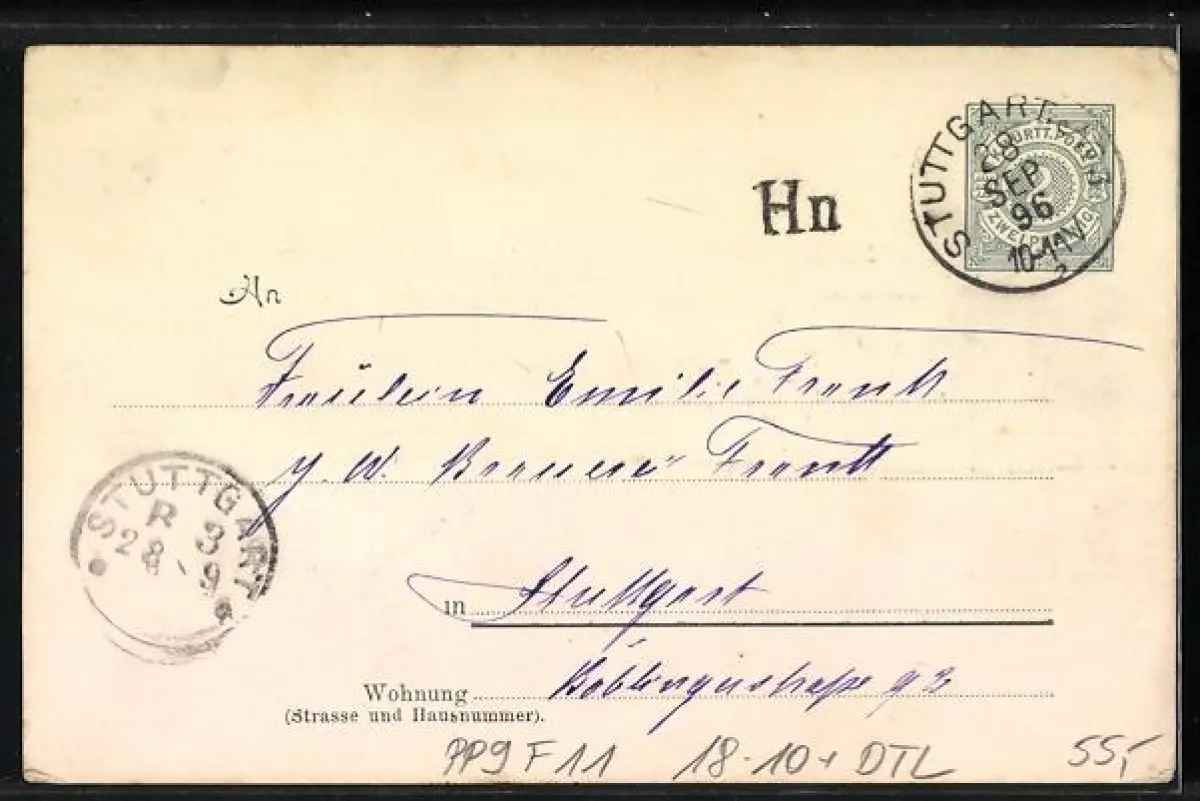 STUTTGART
28
SEP
96
10-11 V
K. WÜRTT. POST
2
ZWEI PFENNIG
Hn
An
Fräulein Emilie Frank
W. Frank
STUTTGART
R 3
28 9
in Stuttgart
Wohnung Böblingerstraße 93
(Strasse und Hausnummer).
PP9 F11 18-10+ DTL 55,-